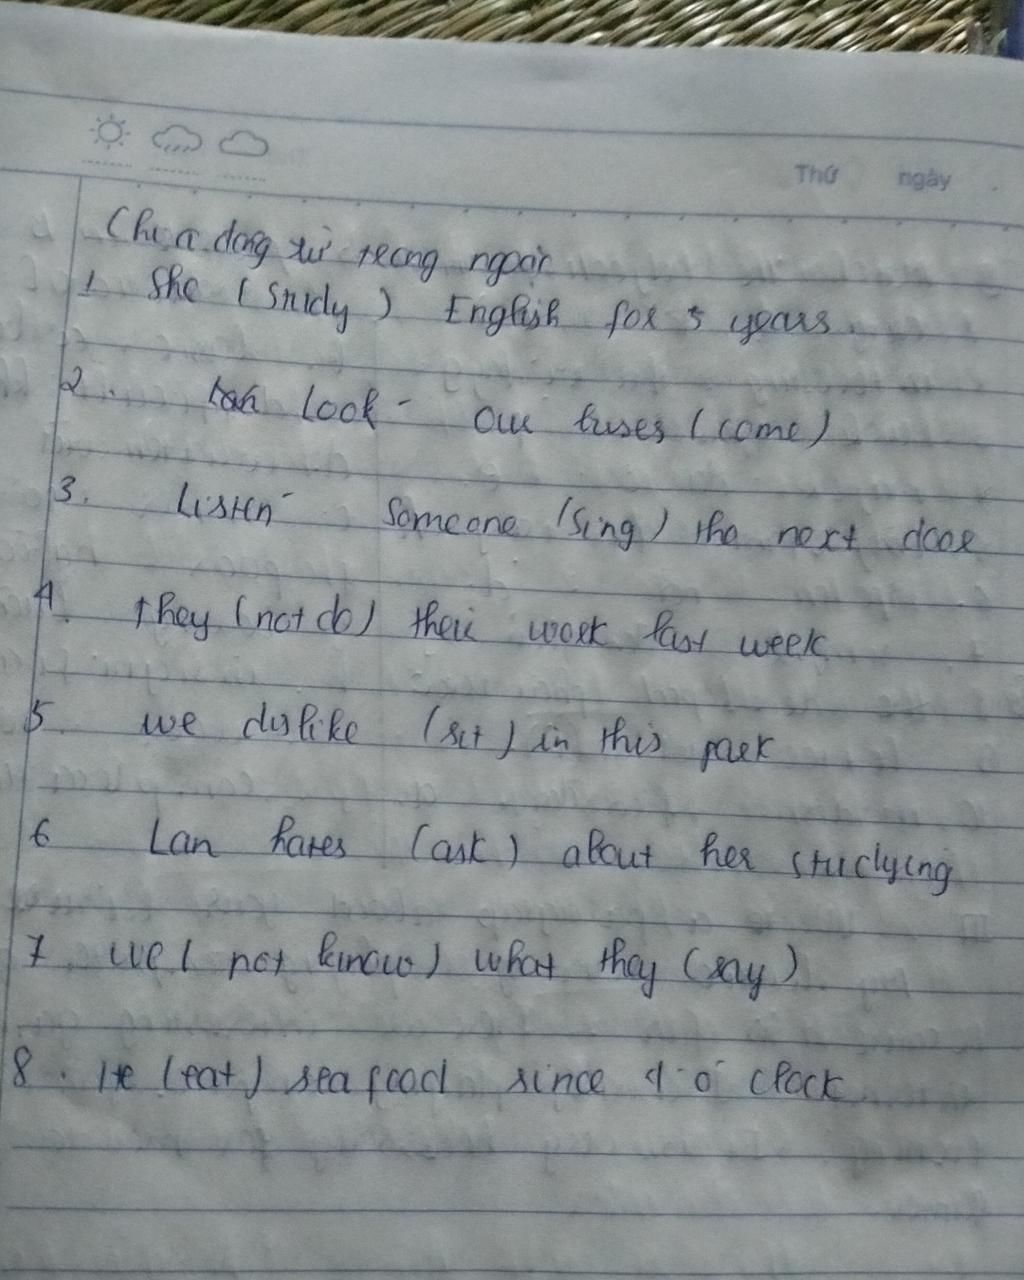 Thứ ngày
Chia động từ trong ngoặc
1. She (study) English for 5 years.
2. Look - Our buses (come)
3. Listen - Someone (sing) the next door
4. they (not do) their work last week
5. we dislike (sit) in this park
6 Lan hates (ask) about her studying
7. we (not know) what they (say)
8. He (eat) sea food since 4 o' clock